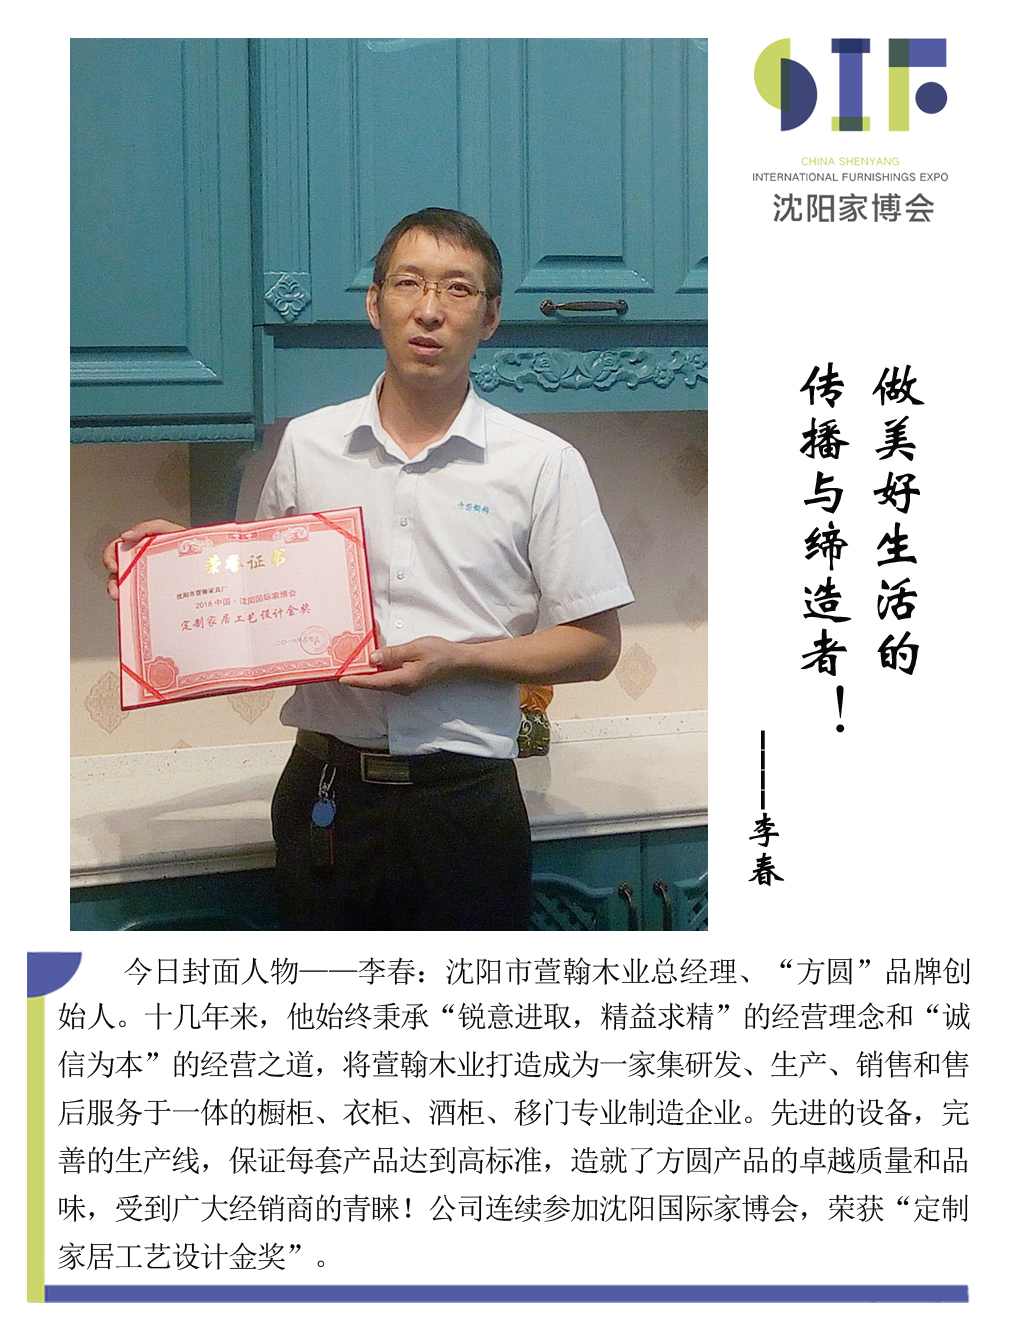 SIF
CHINA SHENYANG
INTERNATIONAL FURNISHINGS EXPO
沈阳家博会
做美好生活的
传播与缔造者！
————李春
荣誉证书
沈阳市萱翰家具厂
2016中国·沈阳国际家博会
定制家居工艺设计金奖
今日封面人物——李春：沈阳市萱翰木业总经理、“方圆”品牌创
始人。十几年来，他始终秉承“锐意进取，精益求精”的经营理念和“诚
信为本”的经营之道，将萱翰木业打造成为一家集研发、生产、销售和售
后服务于一体的橱柜、衣柜、酒柜、移门专业制造企业。先进的设备，完
善的生产线，保证每套产品达到高标准，造就了方圆产品的卓越质量和品
味，受到广大经销商的青睐！公司连续参加沈阳国际家博会，荣获“定制
家居工艺设计金奖”。